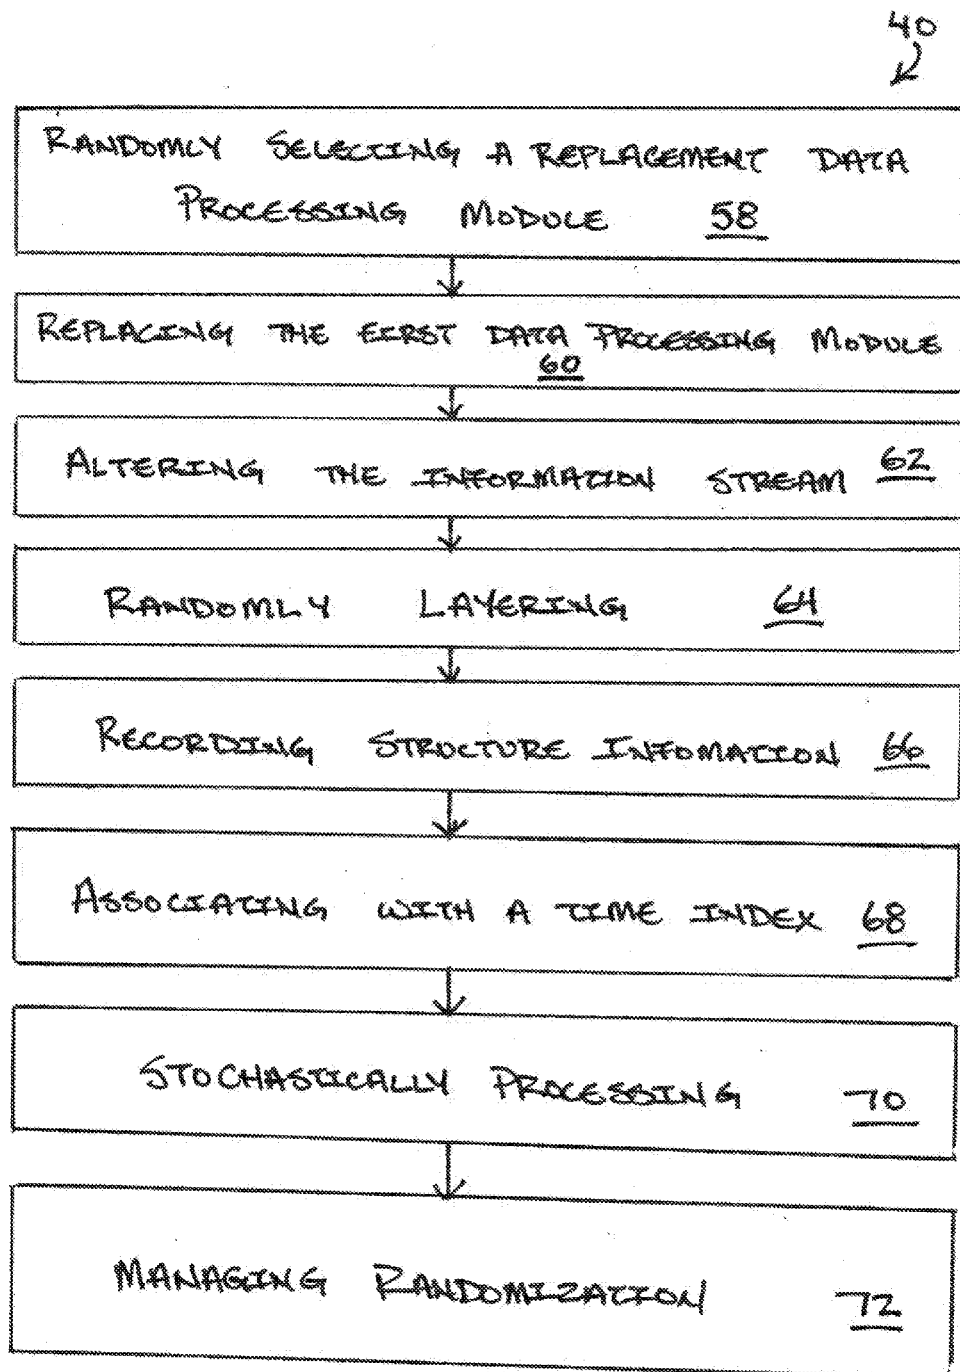 40
RANDOMLY SELECTING A REPLACEMENT DATA
PROCESSING MODULE 58
REPLACING THE FIRST DATA PROCESSING MODULE
60
ALTERING THE INFORMATION STREAM 62
RANDOMLY LAYERING 64
RECORDING STRUCTURE INFOMATION 66
ASSOCIATING WITH A TIME INDEX 68
STOCHASTICALLY PROCESSING 70
MANAGING RANDOMIZATION 72